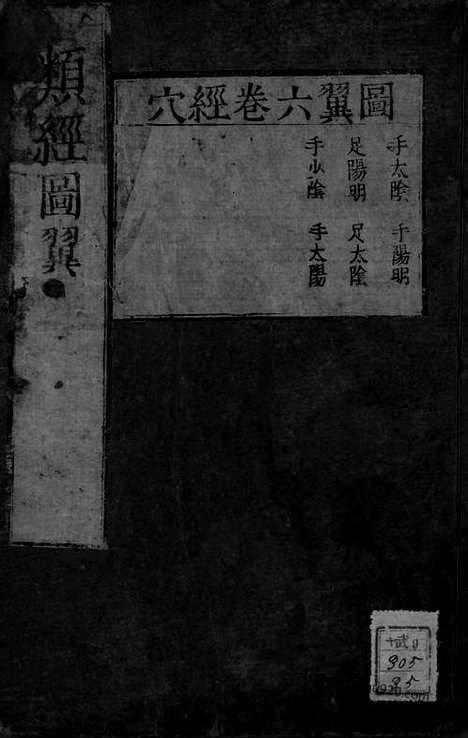 類經圖翼
圖翼六卷經穴
手太陰 手陽明
足陽明 足太陰
手少陰 手太陽
905